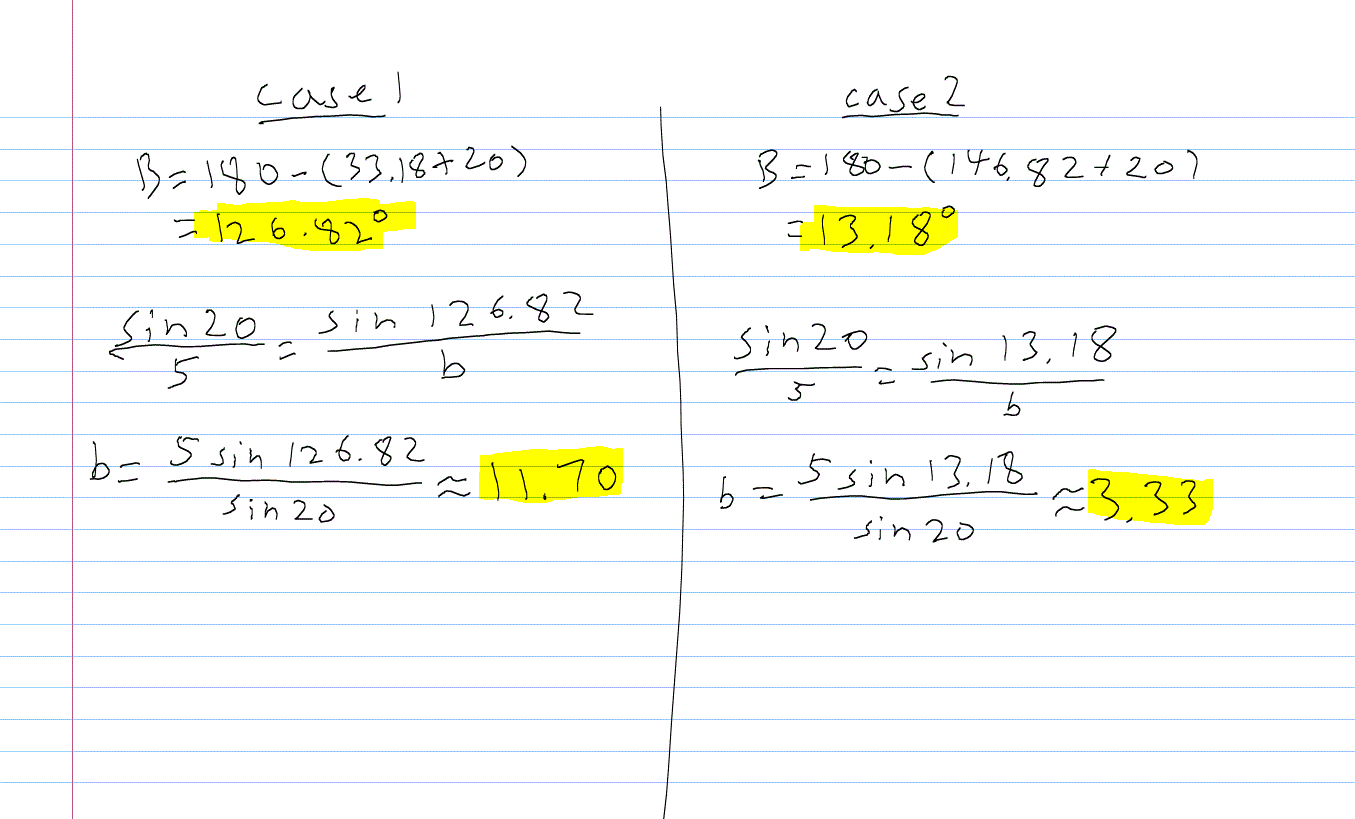 case 1
B = 180 - (33.18 + 20)
= 126.82°
sin 20 / 5 = sin 126.82 / b
b = 5 sin 126.82 / sin 20 ≈ 11.70
case 2
B = 180 - (146.82 + 20)
= 13.18°
sin 20 / 5 = sin 13.18 / b
b = 5 sin 13.18 / sin 20 ≈ 3.33